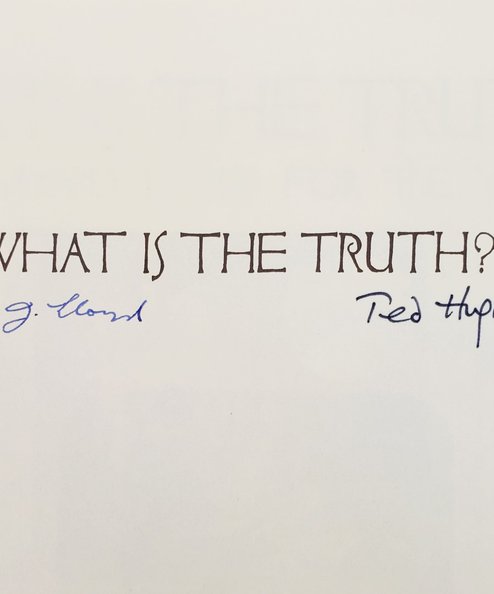 WHAT IS THE TRUTH?
J. Lloyd Ted Hugh